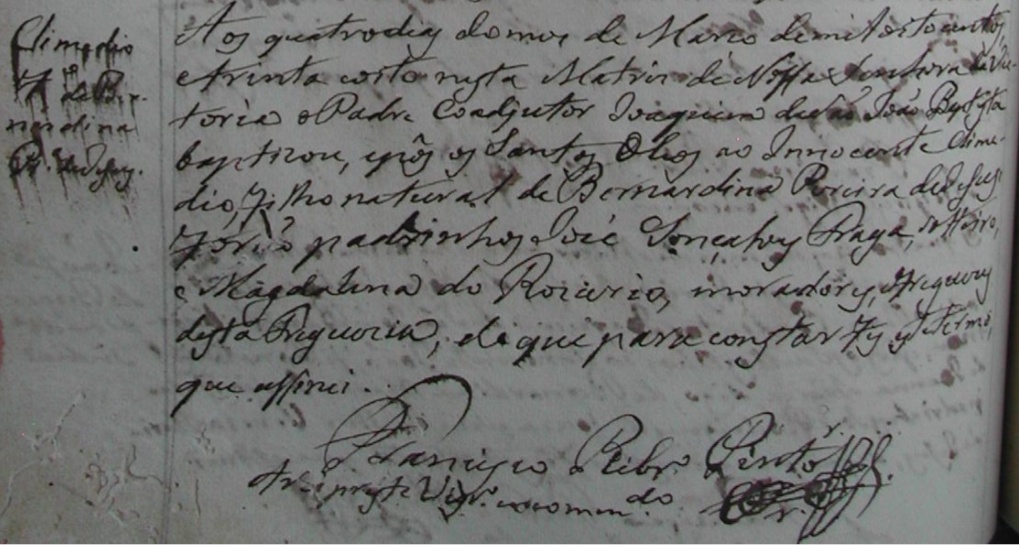 Climedio
f. de Ber-
nardina
P. de Jesus.
Aos quatro dias do mes de Março de mil oito centos
e trinta e oito nesta Matriz de Nossa Senhora da Vic-
toria o Padre Coadjutor Joaquim de São João Baptista
baptizou, e pôs os Santos Oleos ao Innocente Clime-
dio, filho natural de Bernardina Pereira de Jesus;
forão padrinhos José Gonçalves Braga, solteiro,
e Magdalena do Rozario, moradores, e freguezes
desta Freguezia, de que para constar fiz este termo,
que assinei.
Francisco Ribrº Pinto
Arcipreste Vigrº encommendo